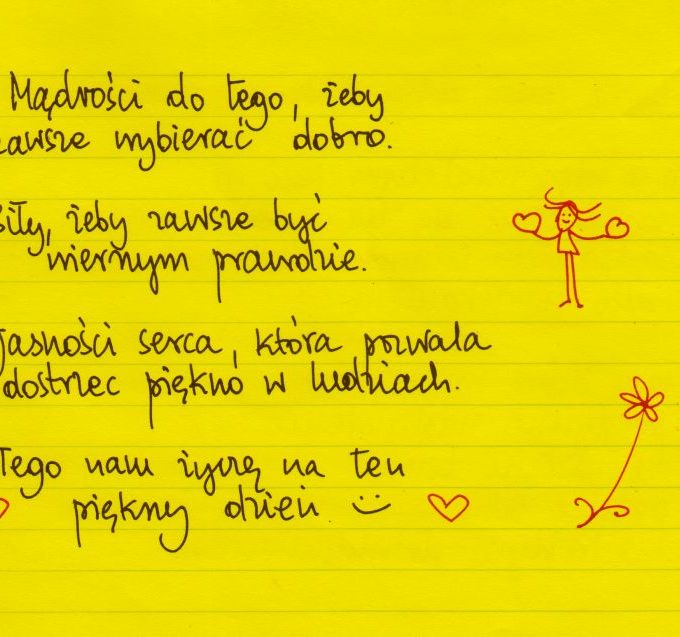 Mądrości do tego, żeby
zawsze wybierać dobro.
siły, żeby zawsze być
wiernym prawdzie.
jasności serca, która pozwala
dostrzec piękno w ludziach.
Tego nam życzę na ten
piękny dzień :)